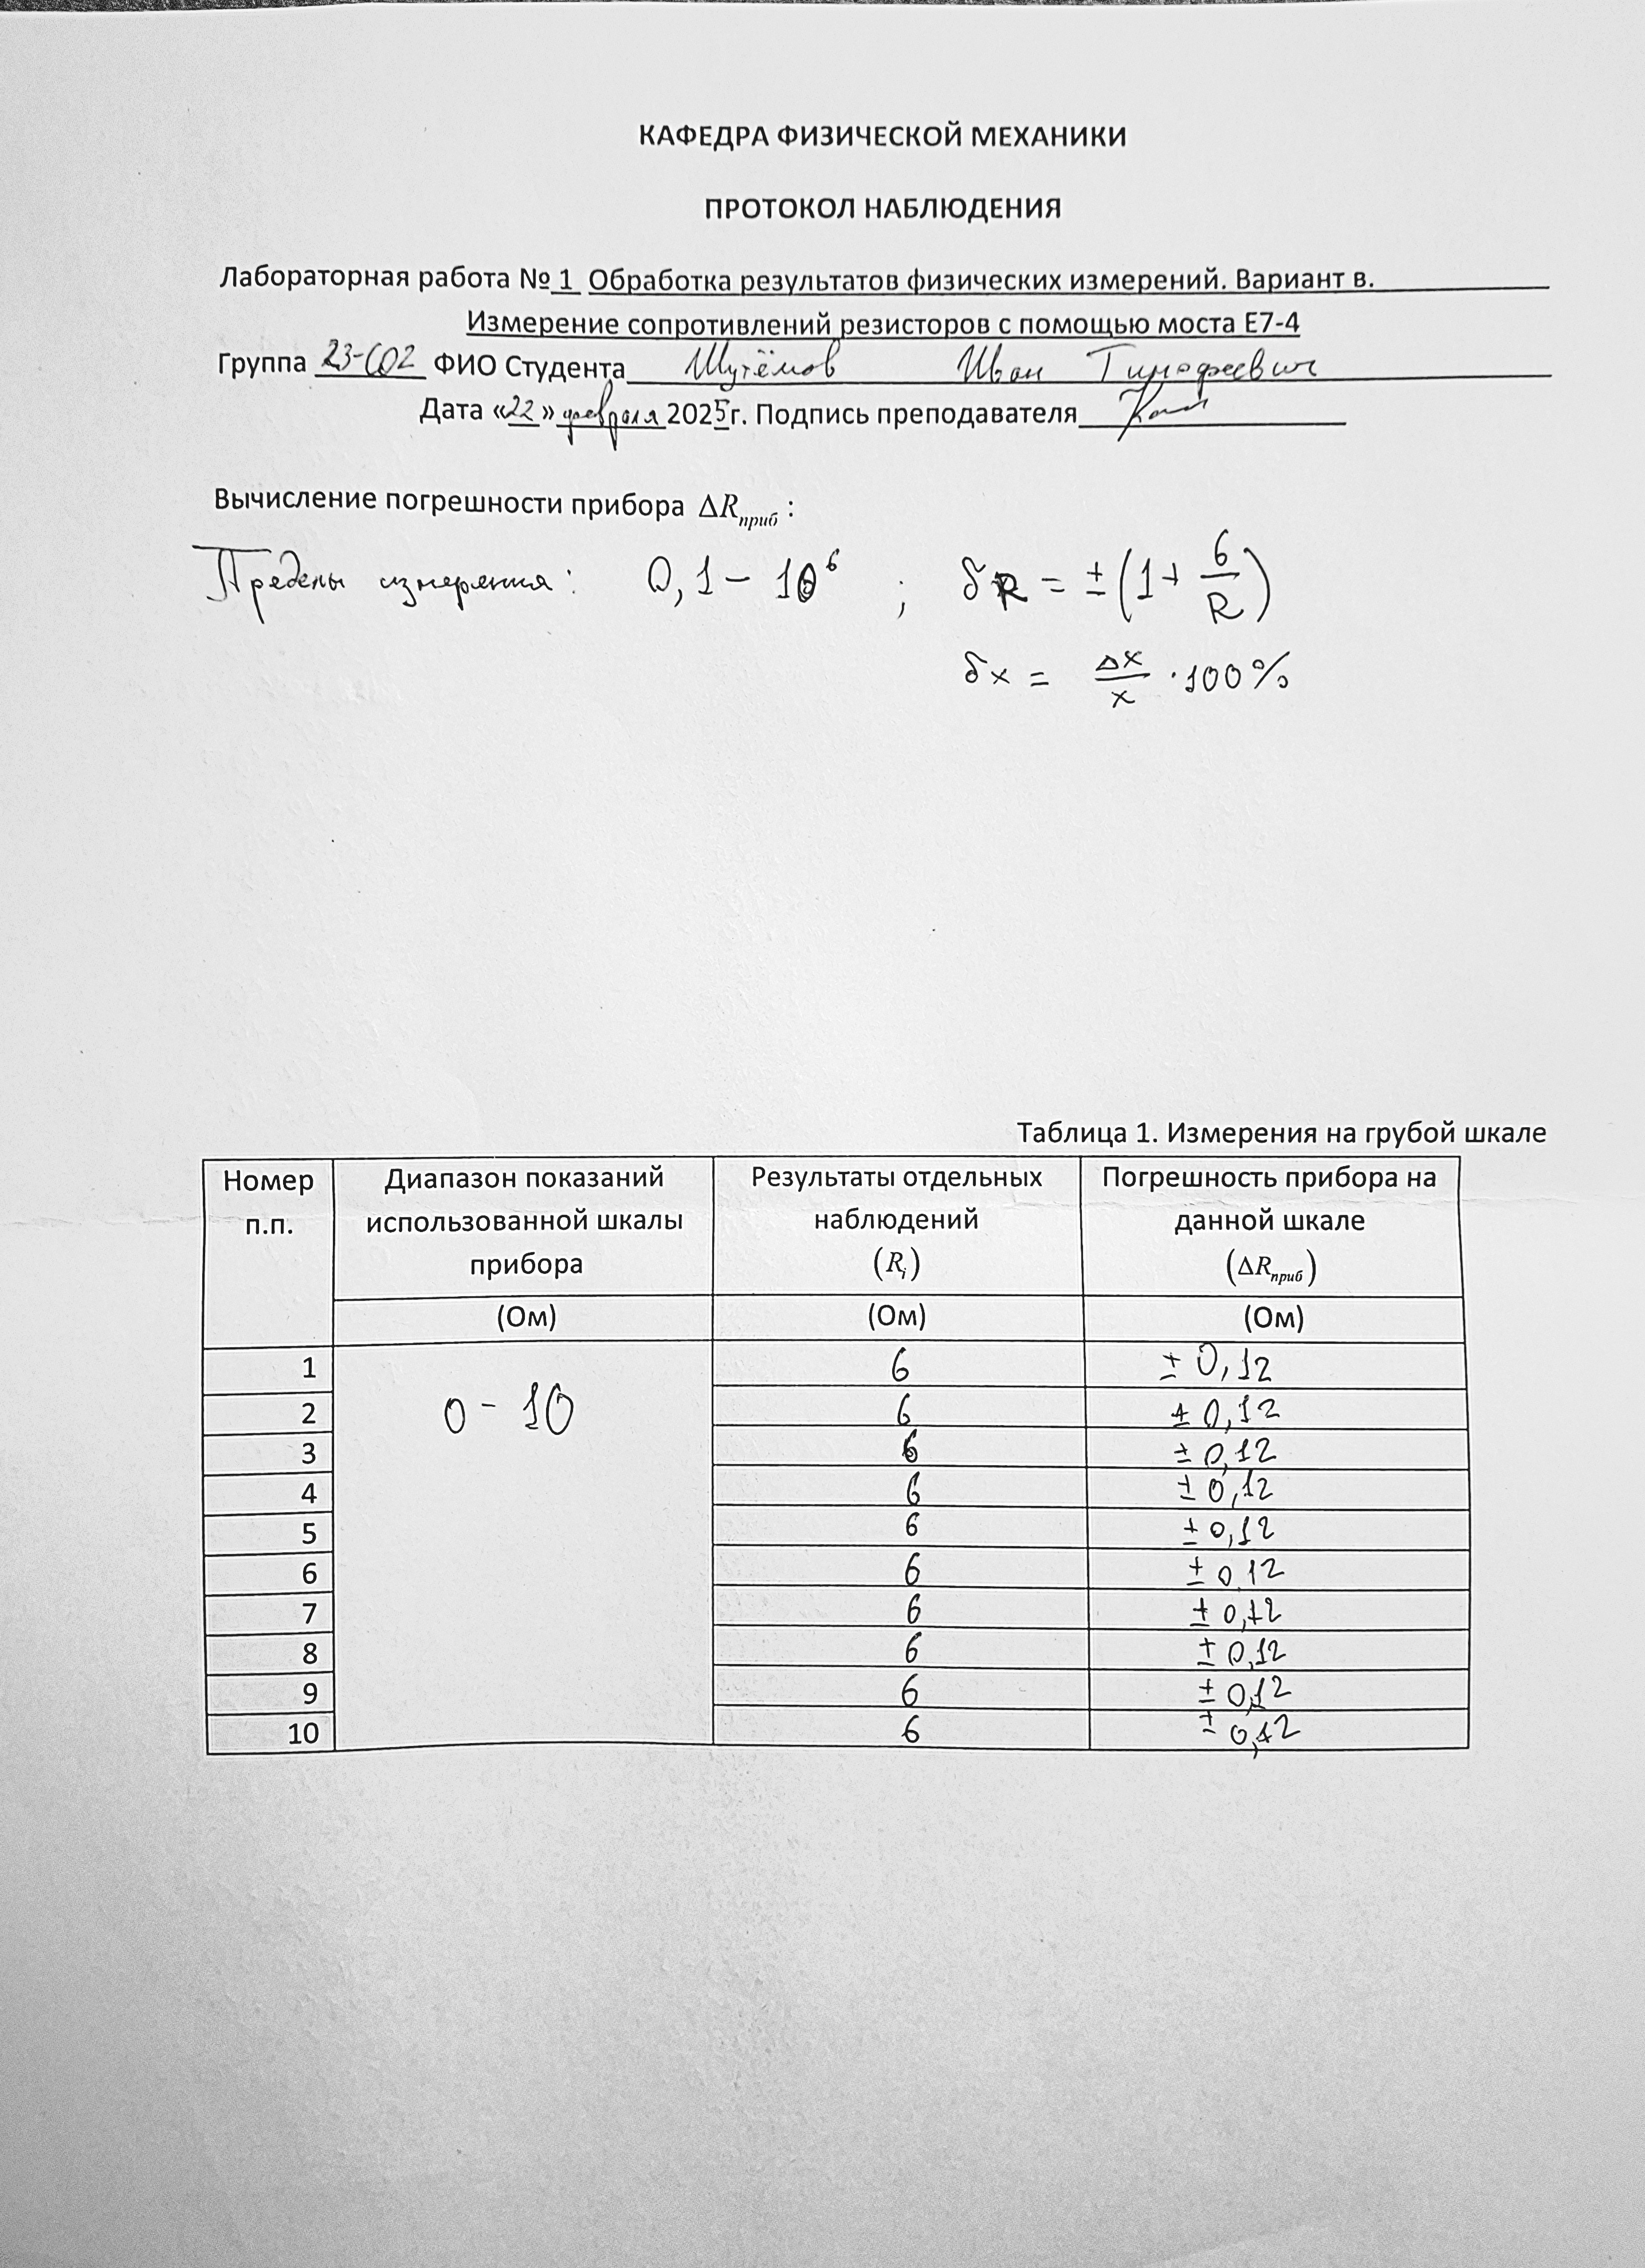 КАФЕДРА ФИЗИЧЕСКОЙ МЕХАНИКИ
ПРОТОКОЛ НАБЛЮДЕНИЯ
Лабораторная работа № 1 Обработка результатов физических измерений. Вариант в.
Измерение сопротивлений резисторов с помощью моста Е7-4
Группа 23-С02 ФИО Студента Шутёмов Иван Тимофеевич
Дата «22» февраля 2025г. Подпись преподавателя
Вычисление погрешности прибора ΔRприб :
Пределы измерения: 0,1 – 10⁶ ; δR = ±(1 + 6/R)
δx = Δx/x · 100%
Таблица 1. Измерения на грубой шкале
Номер п.п. Диапазон показаний использованной шкалы прибора Результаты отдельных наблюдений (Ri) Погрешность прибора на данной шкале (ΔRприб)
(Ом) (Ом) (Ом)
1 0 - 10 6 ± 0,12
2 6 ± 0,12
3 6 ± 0,12
4 6 ± 0,12
5 6 ± 0,12
6 6 ± 0,12
7 6 ± 0,12
8 6 ± 0,12
9 6 ± 0,12
10 6 ± 0,12